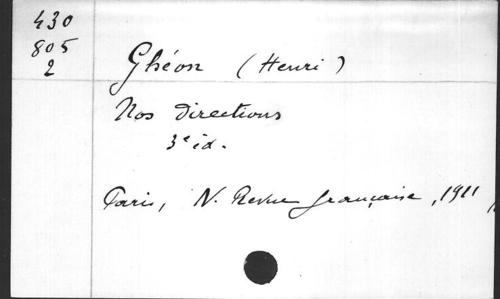 430
805
2
Ghéon (Henri)
Nos directions
3e éd.
Paris, N. Revue française, 1911